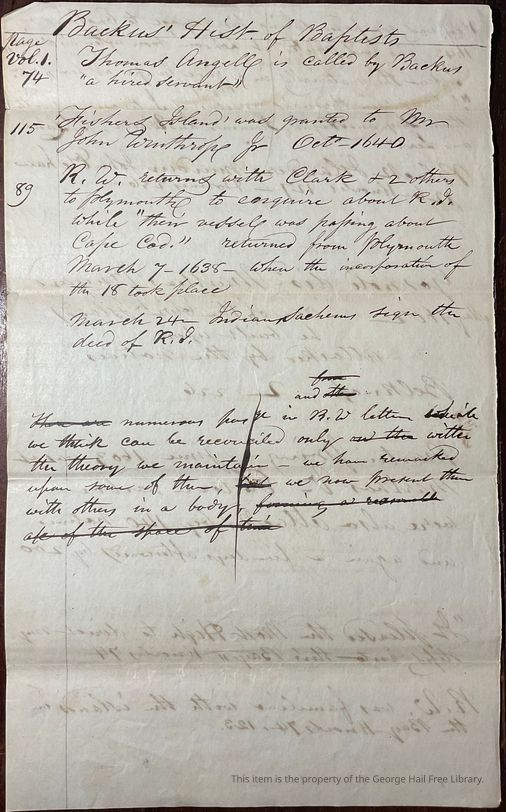 Backus' Hist. of Baptists
Page
Vol. 1.
74
Thomas Angell is called by Backus
"a hired servant"
115
'Fishers Island' was granted to Mr
John Winthrop Jr Oct 1640
89
R. W. returned with Clark & 2 others
to Plymouth to enquire about R. I.
while "their vessels was passing about
Cape Cod." returned from Plymouth
March 7 - 1638 - when the incorporation of
the 18 took place
March 24 Indian Sachems sign the
deed of R. I.
and the
There are numerous in R. W letters
we think can be reconciled only with
the theory we maintain - we have remarked
upon some of them but we now present them
with others in a body, forming a
of the space of time
This item is the property of the George Hail Free Library.